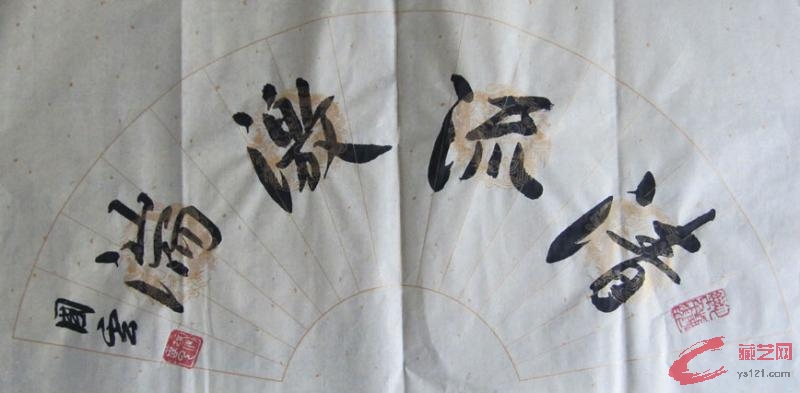 清流激湍
國云
藏艺网
ys121.com